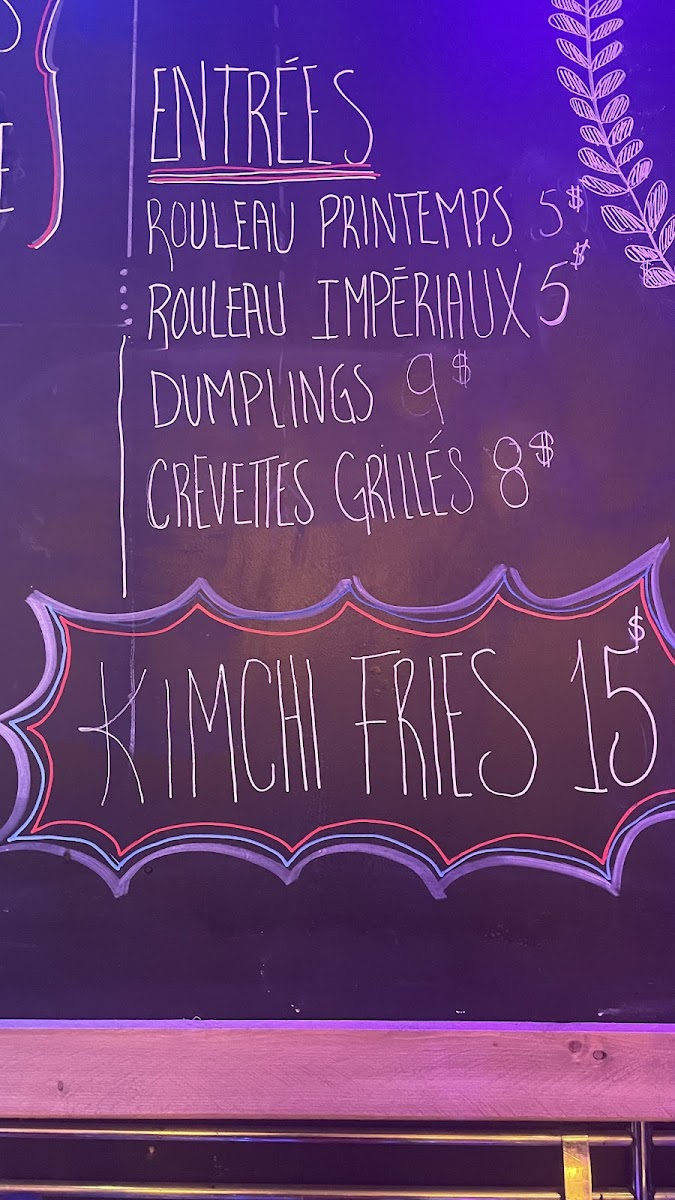 ENTRÉES
ROULEAU PRINTEMPS 5$
ROULEAU IMPÉRIAUX 5$
DUMPLINGS 9$
CREVETTES GRILLÉS 8$
KIMCHI FRIES 15$